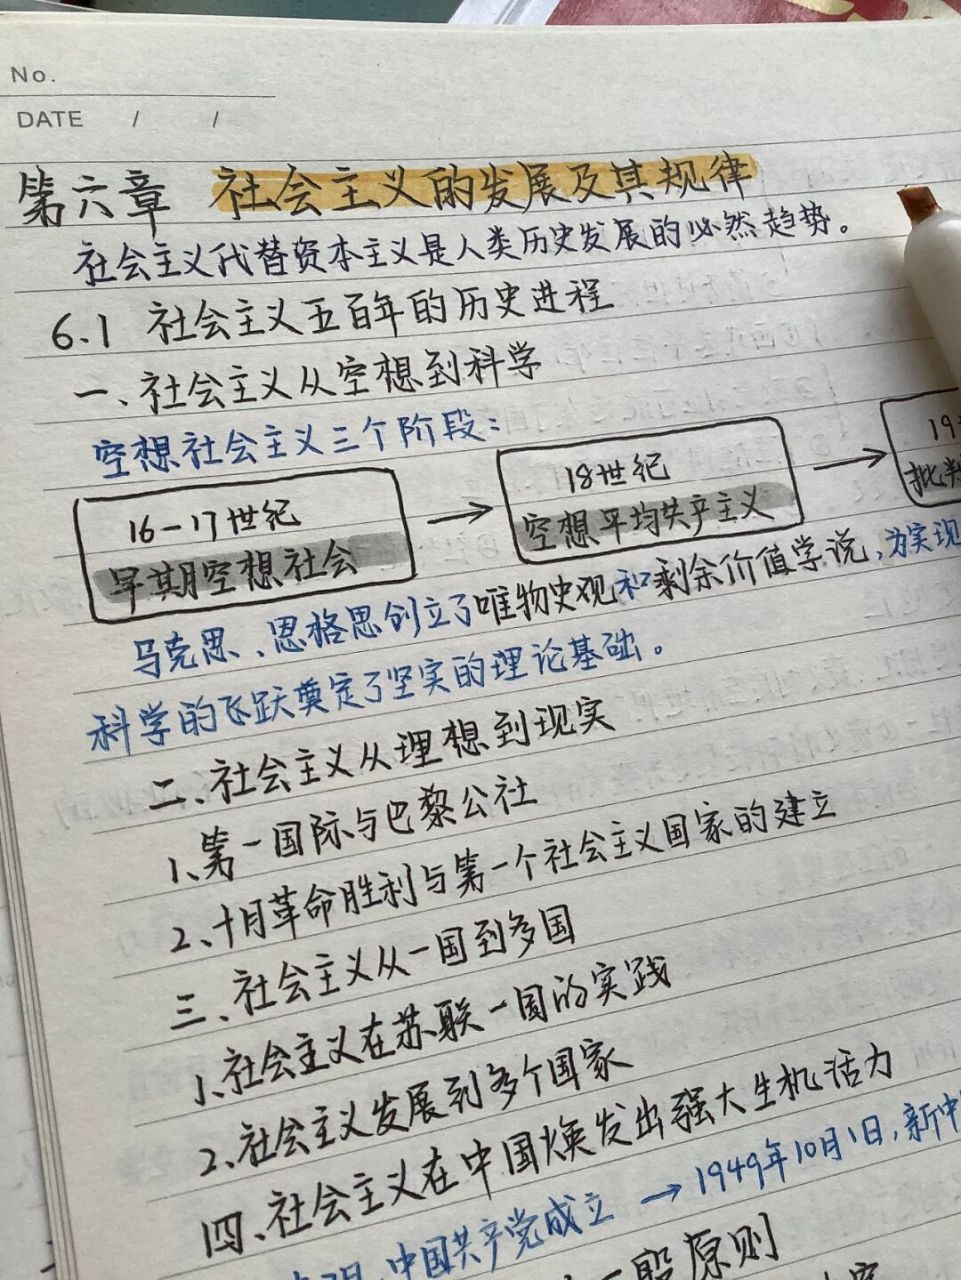 No.
DATE / /
第六章 社会主义的发展及其规律
社会主义代替资本主义是人类历史发展的必然趋势。
6.1 社会主义五百年的历史进程
一、社会主义从空想到科学
空想社会主义三个阶段：
16-17世纪
早期空想社会
→
18世纪
空想平均共产主义
→
19
批判
马克思、恩格思创立了唯物史观和剩余价值学说，为实现
科学的飞跃奠定了坚实的理论基础。
二、社会主义从理想到现实
1、第一国际与巴黎公社
2、十月革命胜利与第一个社会主义国家的建立
三、社会主义从一国到多国
1、社会主义在苏联一国的实践
2、社会主义发展到多个国家
四、社会主义在中国焕发出强大生机活力
中国共产党成立 → 1949年10月1日，新中
一般原则